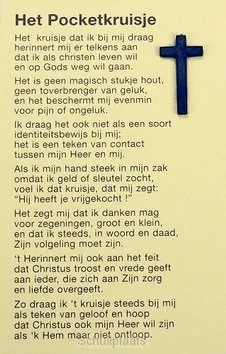 Het Pocketkruisje
Het kruisje dat ik bij mij draag
herinnert mij er telkens aan
dat ik als christen leven wil
en op Gods weg wil gaan.
Het is geen magisch stukje hout,
geen toverbrenger van geluk,
en het beschermt mij evenmin
voor pijn of ongeluk.
Ik draag het ook niet als een soort
identiteitsbewijs bij mij;
het is een teken van contact
tussen mijn Heer en mij.
Als ik mijn hand steek in mijn zak
omdat ik geld of sleutel zocht,
voel ik dat kruisje, dat mij zegt:
"Hij heeft je vrijgekocht !"
Het zegt mij dat ik danken mag
voor zegeningen, groot en klein,
en dat ik steeds, in woord en daad,
Zijn volgeling moet zijn.
't Herinnert mij ook aan het feit
dat Christus troost en vrede geeft
aan ieder, die zich aan Zijn zorg
en liefde overgeeft.
Zo draag ik 't kruisje steeds bij mij
als teken van geloof en hoop
dat Christus ook mijn Heer wil zijn
als 'k Hem maar niet ontloop.
Schuilplaats